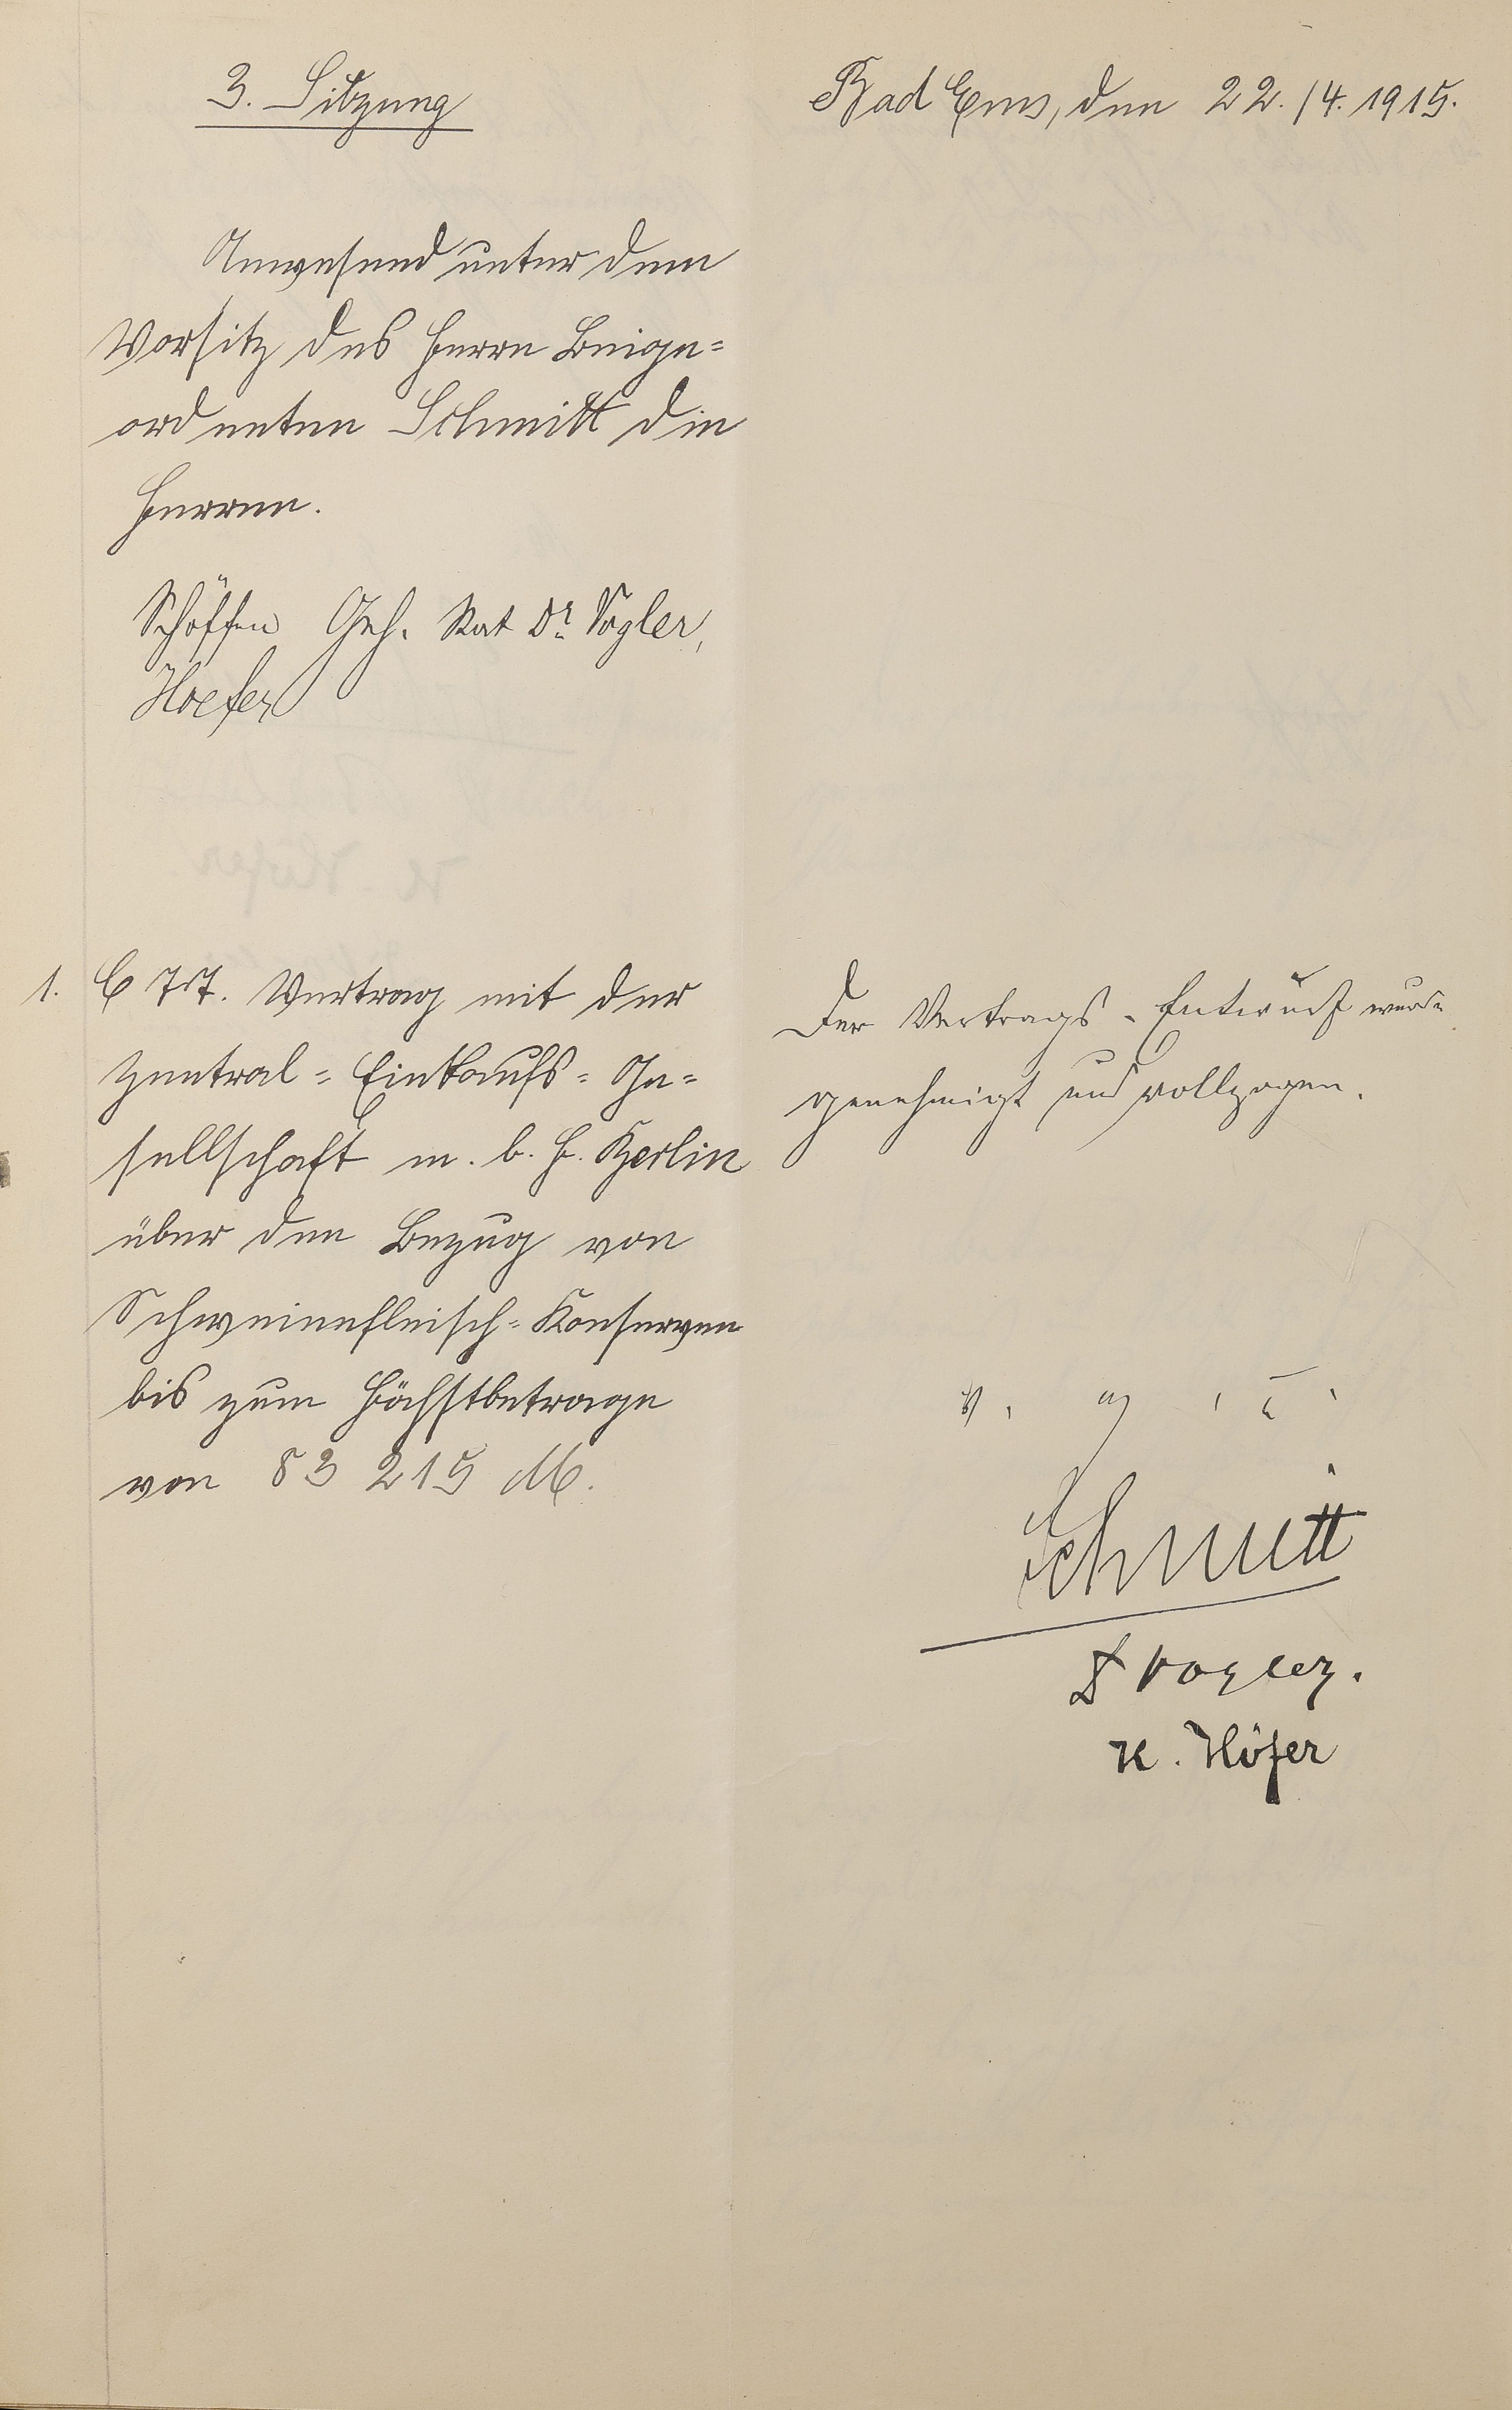 3. Sitzung
Bad Ems, den 22./4. 1915.
Anwesend unter dem
Vorsitz des Herrn Beige=
ordneten Schmitt die
Herren.
Schöffen Geh. Rat Dr. Vogler,
Hoefer
1. C 777. Vertrag mit der
Zentral=Einkaufs=Ge=
sellschaft m. b. H. Berlin
über den Bezug von
Schweinefleisch=Konserven
bis zum Höchstbetrage
von 83 215 M.
Der Vertrags-Entwurf wurde
genehmigt und vollzogen.
v. g. u.
Schmitt
Dr Vogler.
K. Höfer